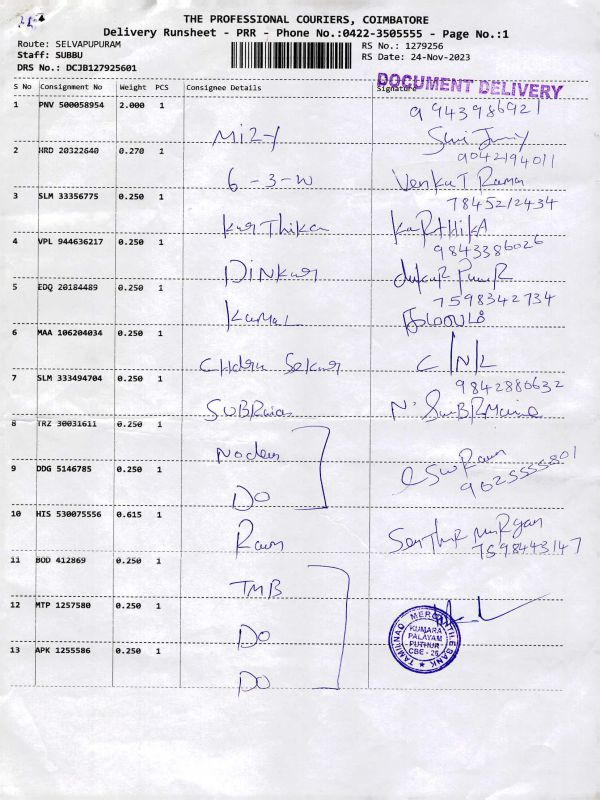 THE PROFESSIONAL COURIERS, COIMBATORE
Delivery Runsheet - PRR - Phone No.:0422-3505555 - Page No.:1
Route: SELVAPUPURAM
RS No.: 1279256
Staff: SUBBU
RS Date: 24-Nov-2023
DRS No.: DCJB127925601
DOCUMENT DELIVERY
S No Consignment No Weight PCS Consignee Details Signature
1 PNV 500058954 2.000 1 9943986921
2 HRD 20322640 0.270 1 9042194011
6-3-W Venkat Rama
3 SLM 33356775 0.250 1 7845212434
Karthika KaRTHIKA
4 VPL 944636217 0.250 1 9843386026
Dinkar
5 EDQ 20184489 0.250 1 7598342734
Kamal
6 MAA 106204034 0.250 1
7 SLM 333494704 0.250 1 9842880632
8 TRZ 30031611 0.250 1
9 DDG 5146785 0.250 1
DO
10 HIS 530075556 0.615 1
Ram 7598443147
11 BOD 412869 0.250 1
TMB
12 MTP 1257580 0.250 1
DO
13 APK 1255586 0.250 1
DO
TAMILNAD MERCANTILE BANK
KUMARA
PALAYAM
PUTHUR
CBE - 26